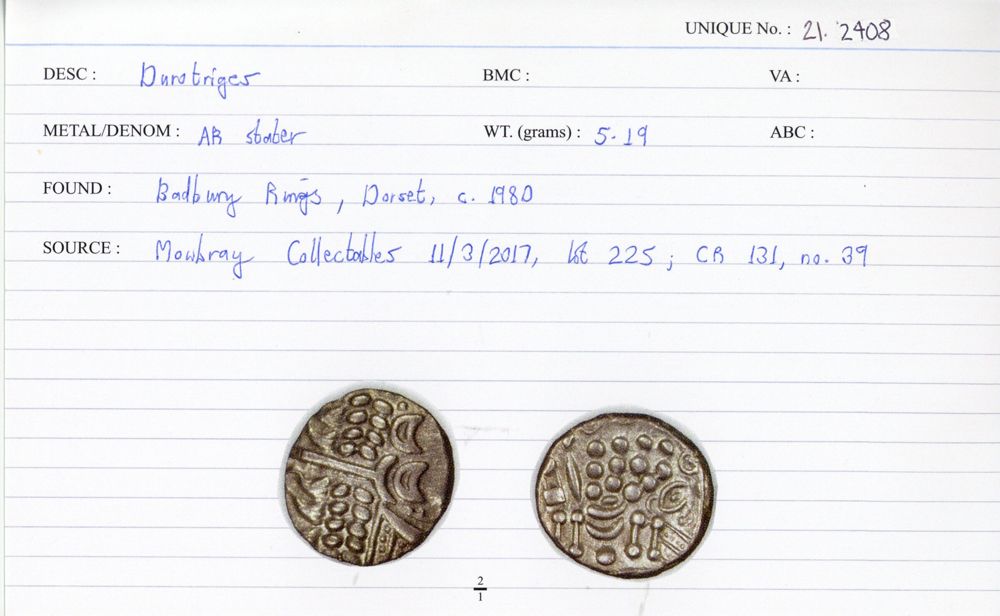 UNIQUE No. : 21. 2408
DESC : Durotriges BMC : VA :
METAL/DENOM : AR stater WT. (grams) : 5.19 ABC :
FOUND : Badbury Rings, Dorset, c. 1980
SOURCE : Mowbray Collectables 11/3/2017, lot 225 ; CR 131, no. 39
2
1